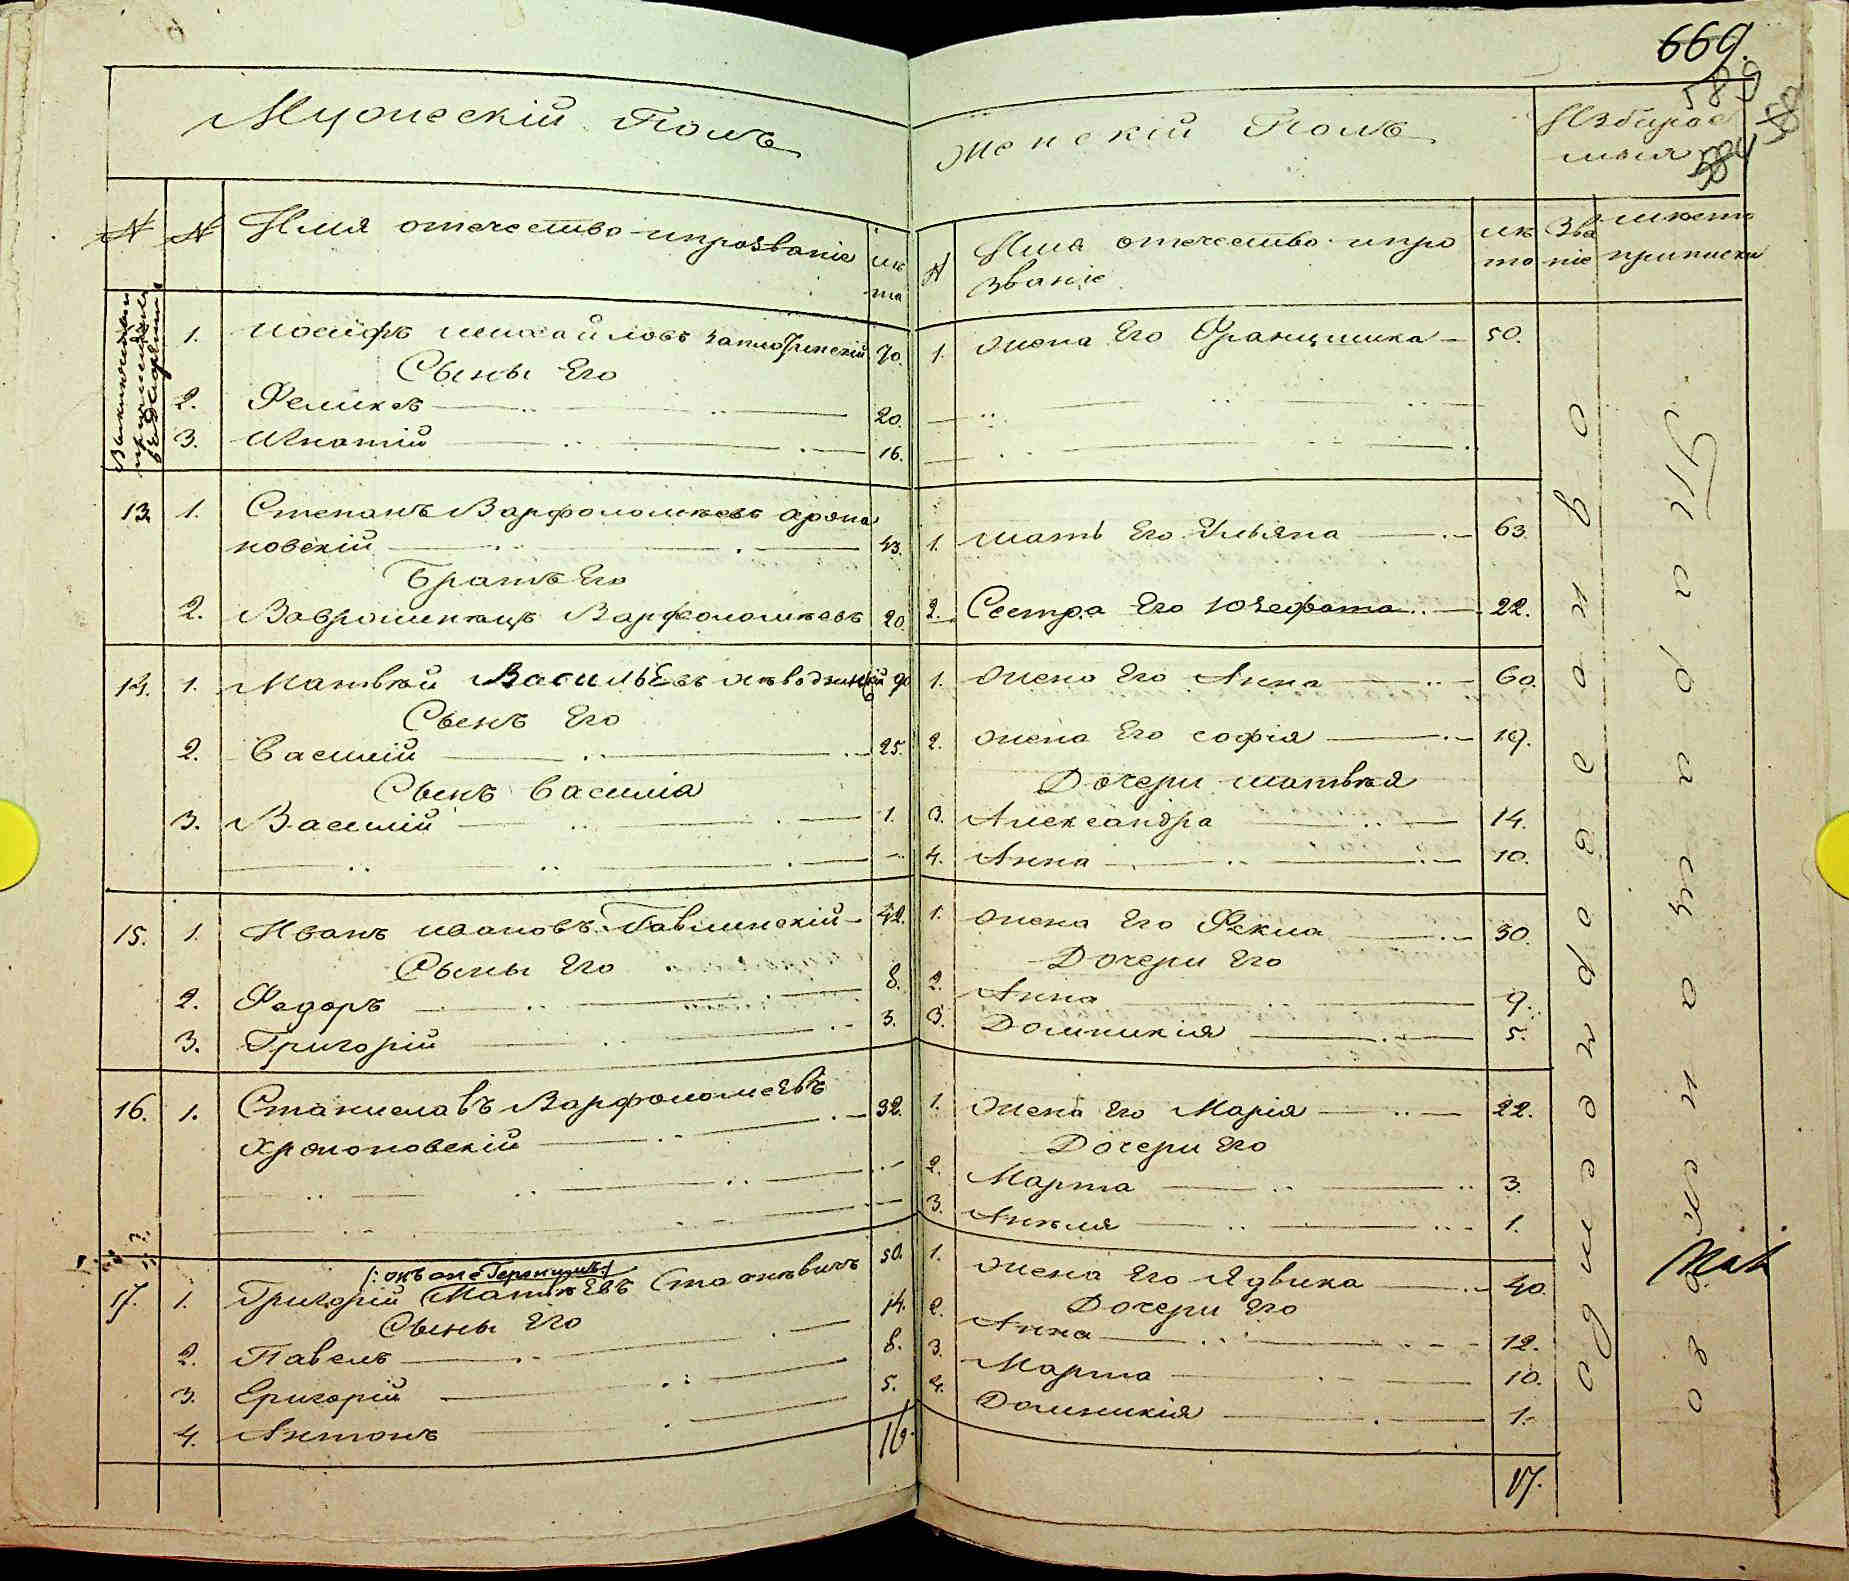 669.
589
Мужескій Полъ
Женскій Полъ
Избирае
мыя
№ № Имя отечество и прозваніе лѣ
та
№ Имя отечество и про
званіе
лѣ
та
Зва
ніе
мѣсто
приписки
1. Иосифъ Михайловъ 70.
Сыны Его
2. Феликсъ 20.
3. Игнатій 16.
1. Жена Его Францишка 50.
13. 1. Степанъ Варфоломѣевъ Хржа
новскій 43.
Братъ Его
2. Варфоломѣевъ 20.
1. Мать Его Ульяна 63.
2. Сестра Его Юзефата 22.
14. 1. Матвѣй Васильевъ
Сынъ Его
2. Василій 25.
Сынъ Василія
3. Василій 1.
1. Жена Его Анна 60.
2. Жена Его Софія 19.
Дочери Матвѣя
3. Александра 14.
4. Анна 10.
15. 1. Иванъ Ивановъ Гавлинскій 42.
Сыны Его 8.
2. Федоръ
3. Григорій 3.
1. Жена Его Фекла 30.
Дочери Его
2. Анна 9.
3. Домникія 5.
16. 1. Станиславъ Варфоломеевъ 32.
Хржоновскій
1. Жена Его Марія 22.
Дочери Его
2. Марта 3.
3. Анѣля 1.
17. 1. Григорій Матѣевъ 50.
Сыны Его 14.
2. Павелъ 8.
3. Григорій 5.
4. Антонъ
16.
1. Жена Его Ядвига 40.
2. Дочери Его
Анна 12.
3. Марта 10.
4. Домникія 1.
17.
Однодворческо
Таращанско
го